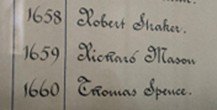 1658 Robert Straker.
1659 Richard Mason
1660 Thomas Spence.